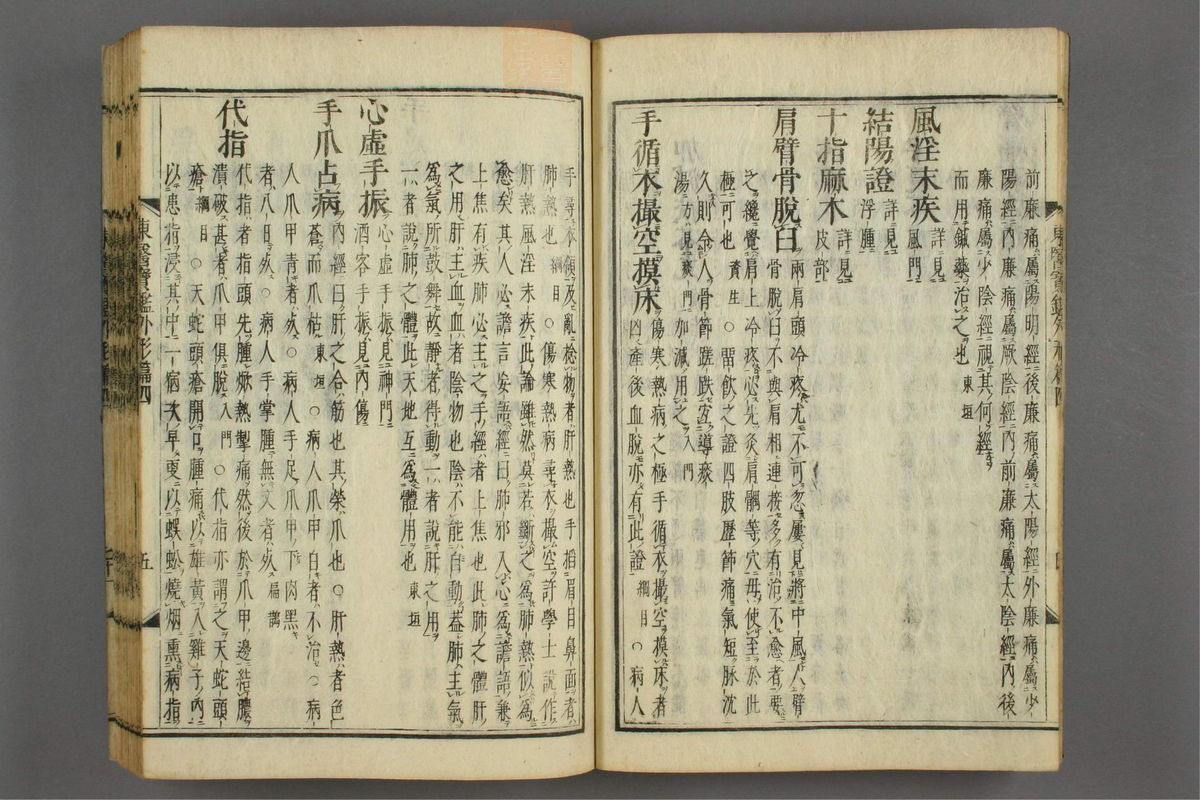 前廉痛屬陽明經後廉痛屬太陽經外廉痛屬少
陽經內廉痛屬厥陰經內前廉痛屬太陰經內後
廉痛屬少陰經視其何經
而用鍼藥治之也 東垣
風淫末疾 詳見風門
結陽證 詳見浮腫
十指麻木 詳見皮部
肩臂骨脫臼 兩肩頭冷疼尤不可忽屢見將中風人臂
骨脫臼不與肩相連接多有治不愈者要
之纔覺肩上冷疼必先灸肩髃等穴毋使至於此
極可也 資生 ○留飮之證四肢歷節痛氣短脉沈
久則令人骨節蹉跌宜導痰
湯方見痰門加減用之 入門
手循衣撮空摸床 傷寒熱病之極手循衣撮空摸床者
凶產後血脫亦有此證 綱目 ○病人
手尋衣領及亂捻物者肝熱也手捏眉目鼻面者
肺熱也 綱目 ○傷寒熱病尋衣撮空許學士說作
肝熱風淫末疾此論雖然莫若斷之爲肺熱似爲
愈矣其人必譫言妄語經曰肺邪入心爲譫語兼
上焦有疾肺必主之手經者上焦也此肺之體肝
之用肝主血血者陰物也陰不能自動盖肺主氣
爲氣所鼓舞故靜者得動一者說肝之用
一者說肺之體此天地互爲體用也 東垣
心虛手振 心虛手振見神門
酒客手振見內傷
手爪占病 內經曰肝之合筋也其榮爪也○肝熱者色
蒼而爪枯 東垣 ○病人爪甲白者不治○病
人爪甲靑者死○病人手足爪甲下肉黑
者八日死○病人手掌腫無文者死 扁鵲
代指 代指者指頭先腫焮熱掣痛然後於爪甲邊結膿
潰破甚者爪甲俱脫 入門 ○代指亦謂之天蛇頭
瘡 綱目 ○天蛇頭瘡開口腫痛以雄黃入雞子內
以患指浸其中一宿次早更以蜈蚣燒烟熏病指
東醫寶鑑外形篇四
五